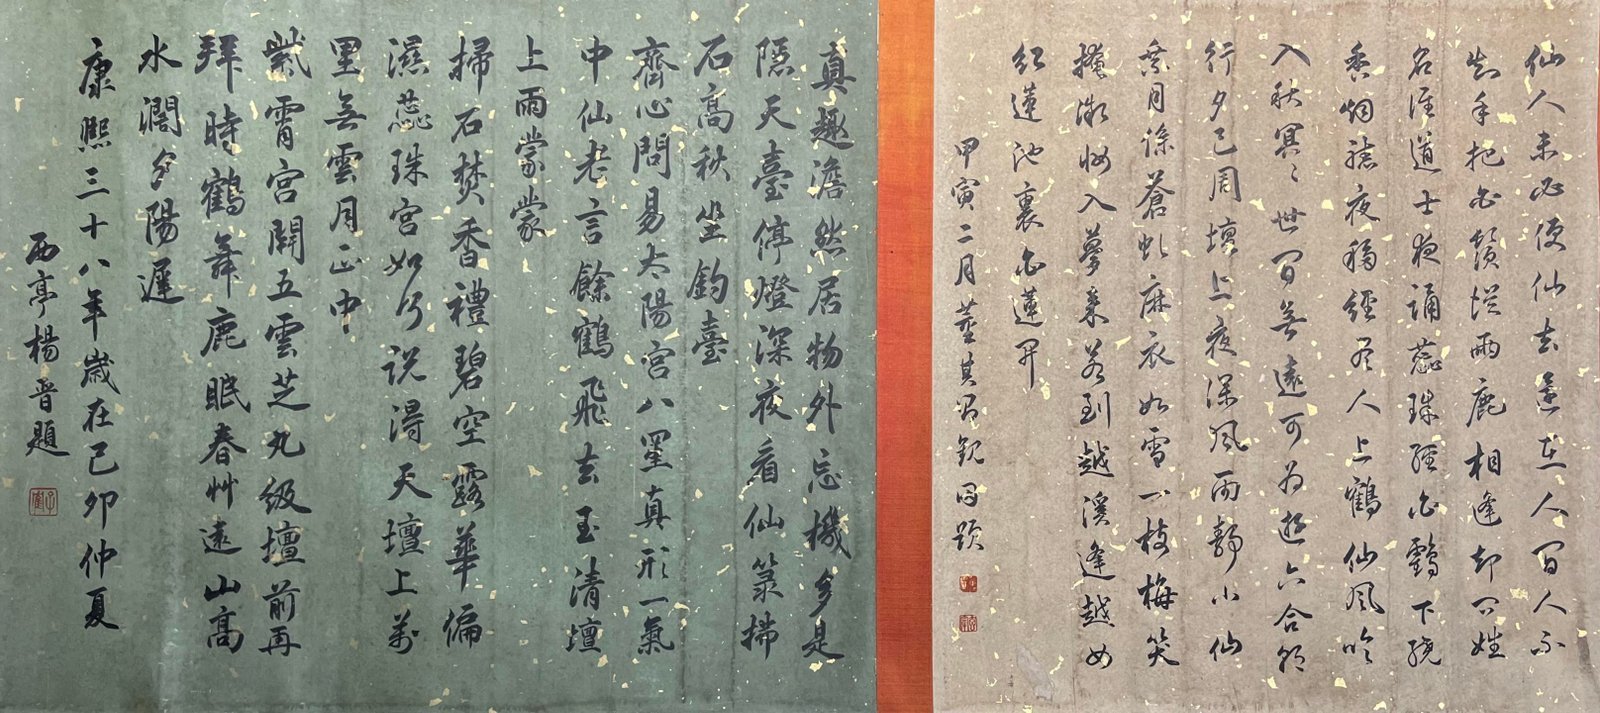 仙人未必便仙去還在人間人不
知手把白鬚從兩鹿相逢却問姓
名誰道士夜誦蕊珠經白鶴下繞
香烟聽夜移經盡人上鶴仙風吹
入秋冥〻世間無遠可為遊六合朝
行夕已周壇上夜深風雨靜小仙
乘月蒼虬麻衣如雪一枝梅笑
掩微妝入夢來若到越溪逢越女
紅蓮池裏白蓮開
甲寅二月董其昌觀因題
真趣澹然居物外忘機多是
隱天臺停燈深夜看仙籙掃
石高秋坐釣臺
齋心問易太陽宮八罣真形一氣
中仙老言餘鶴飛去玉清壇
上雨蒙蒙
掃石焚香禮碧空露華偏
濕蕊珠宮如何說得天壇上萬
里無雲月正中
紫霄宮開五雲芝九級壇前再
拜時鶴舞鹿眠春艸遠山高
水濶夕陽遲
康熙三十八年歲在己卯仲夏
西亭楊晉題